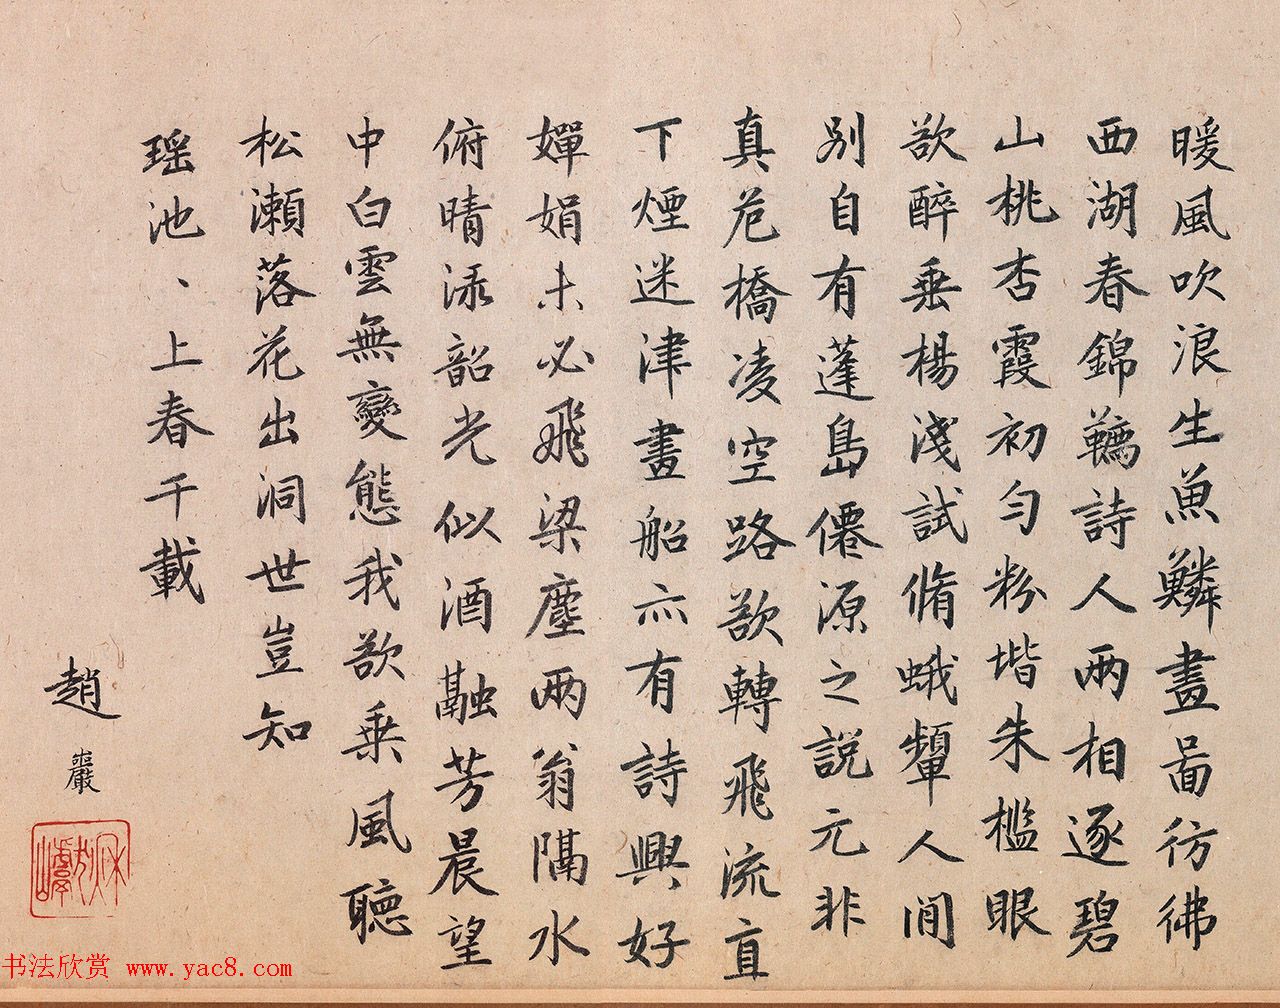 暖風吹浪生魚鱗畫啚彷彿
西湖春錦韉詩人兩相逐碧
山桃杏霞初勻粉堦朱檻眼
欲醉垂楊淺試脩蛾顰人間
別自有蓬島僊源之說元非
真危橋凌空路欲轉飛流直
下煙迷津畫船亦有詩興好
嬋娟未必飛梁塵兩翁隔水
俯晴淥韶光似酒融芳晨望
中白雲無變態我欲乘風聽
松瀨落花出洞世豈知
瑤池、上春千載
趙巖
书法欣赏 www.yac8.com